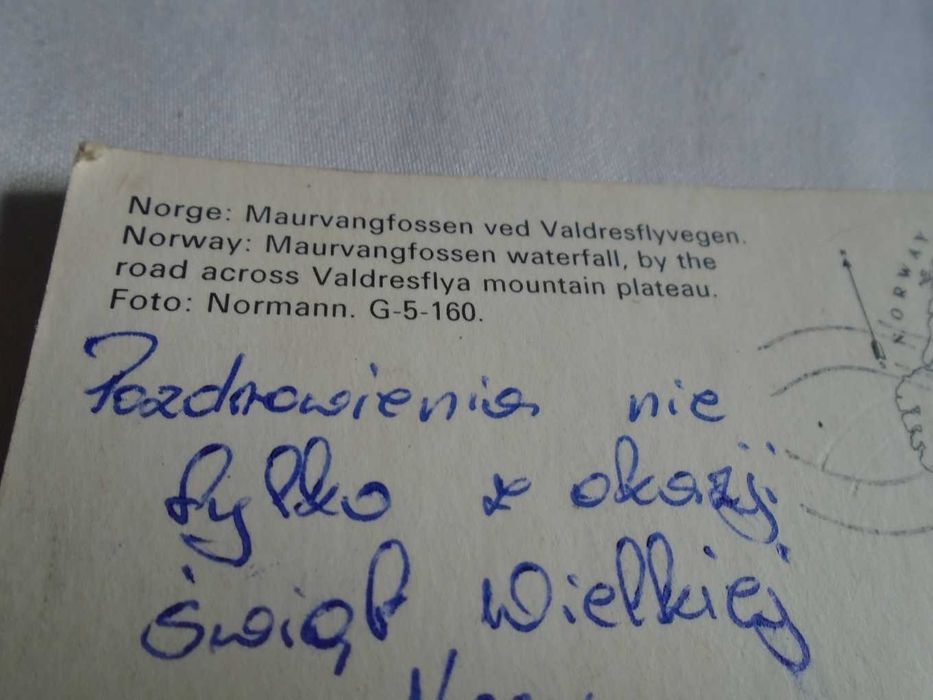 Norge: Maurvangfossen ved Valdresflyvegen.
Norway: Maurvangfossen waterfall, by the
road across Valdresflya mountain plateau.
Foto: Normann. G-5-160.
NORWAY
Pozdrowienia nie
tylko z okazji
świąt Wielkiej